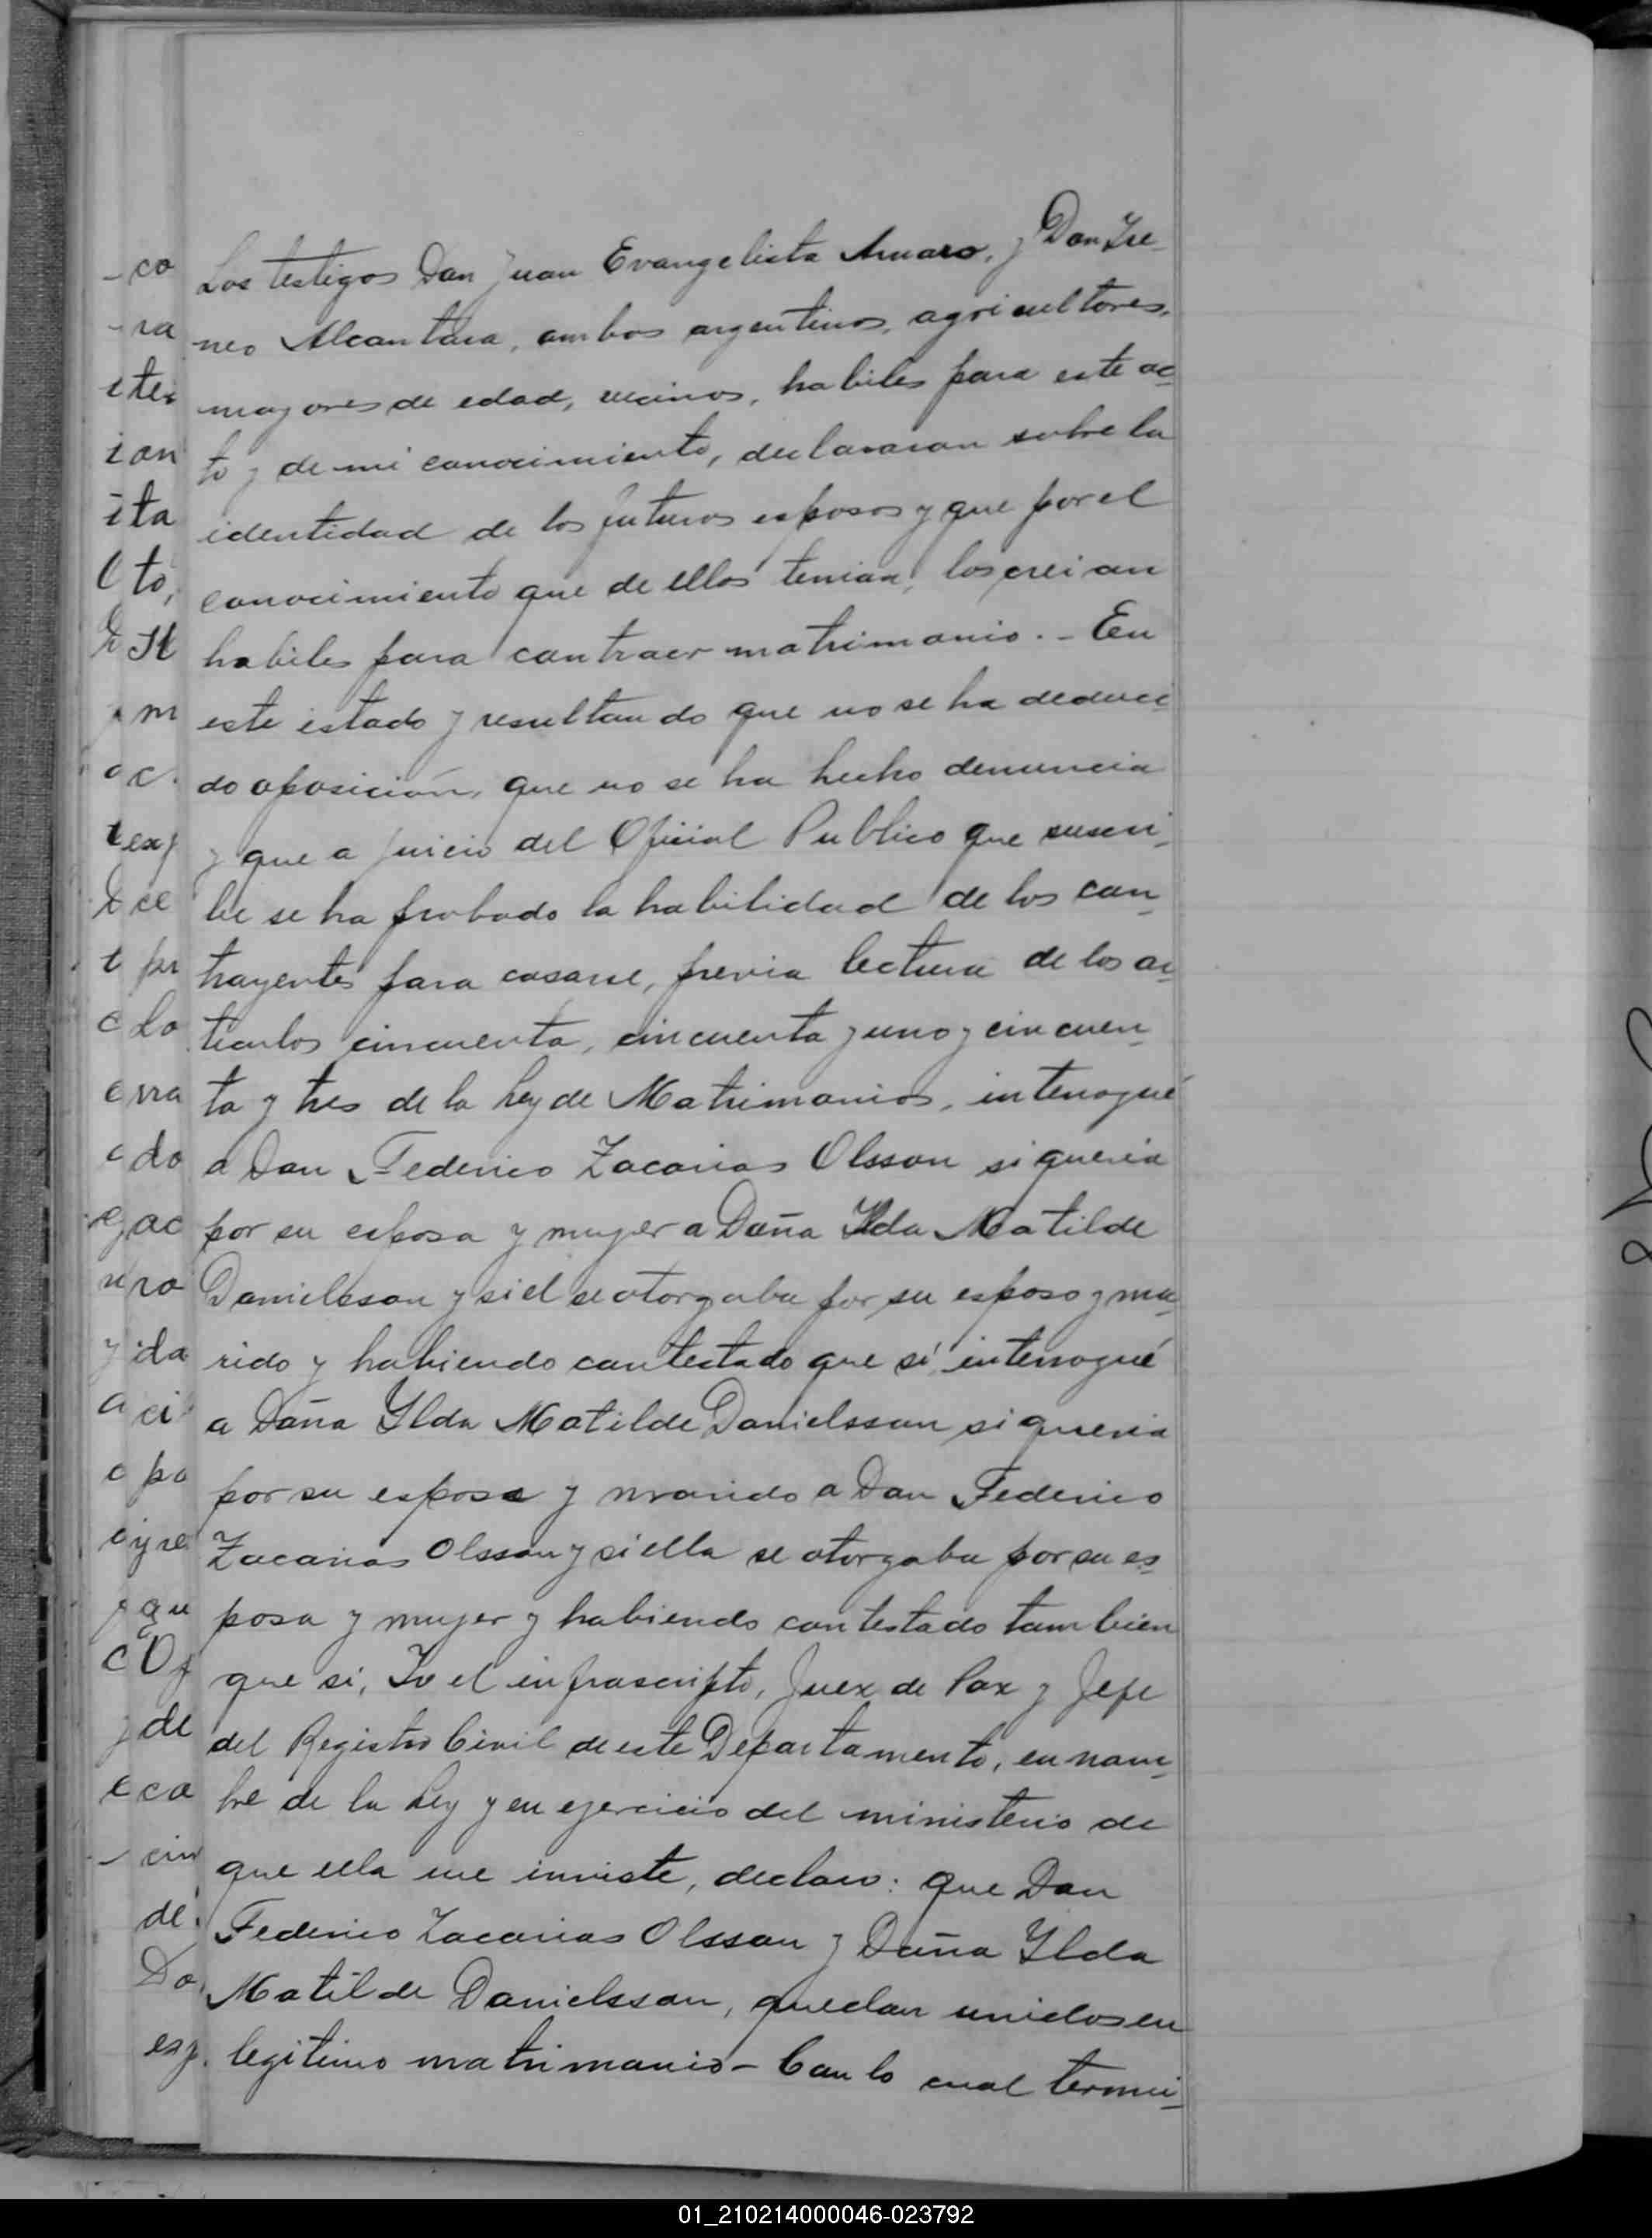 Los testigos Don Juan Evangelista Amaro, y Don Ire-
neo Alcantara, ambos argentinos, agricultores,
mayores de edad, vecinos, habiles para este ac-
to y de mi conocimiento, declararon sobre la
identidad de los futuros esposos y que por el
conocimiento que de ellos tenian, los creian
habiles para contraer matrimonio. - En
este estado y resultando que no se ha deduci-
do oposición, que no se ha hecho denuncia
y que a juicio del Oficial Publico que suscri-
be se ha probado la habilidad de los con-
trayentes para casarse, previa lectura de los ar-
ticulos cincuenta, cincuenta y uno y cincuen-
ta y tres de la Ley de Matrimonios, interrogué
a Don Federico Zacarias Olsson si queria
por su esposa y mujer a Doña Ylda Matilde
Danielsson y si el se otorgaba por su esposo y ma-
rido y habiendo contestado que sí, interrogué
a Doña Ylda Matilde Danielsson si queria
por su esposo y marido a Don Federico
Zacarias Olsson y si ella se otorgaba por su es-
posa y mujer y habiendo contestado tambien
que si, Yo el infrascripto, Juez de Paz y Jefe
del Registro Civil de este Departamento, en nom-
bre de la Ley y en ejercicio del ministerio de
que ella me inviste, declaro: que Don
Federico Zacarias Olsson y Doña Ylda
Matilde Danielsson, quedan unidos en
legitimo matrimonio - Con lo cual termi-
01_210214000046-023792